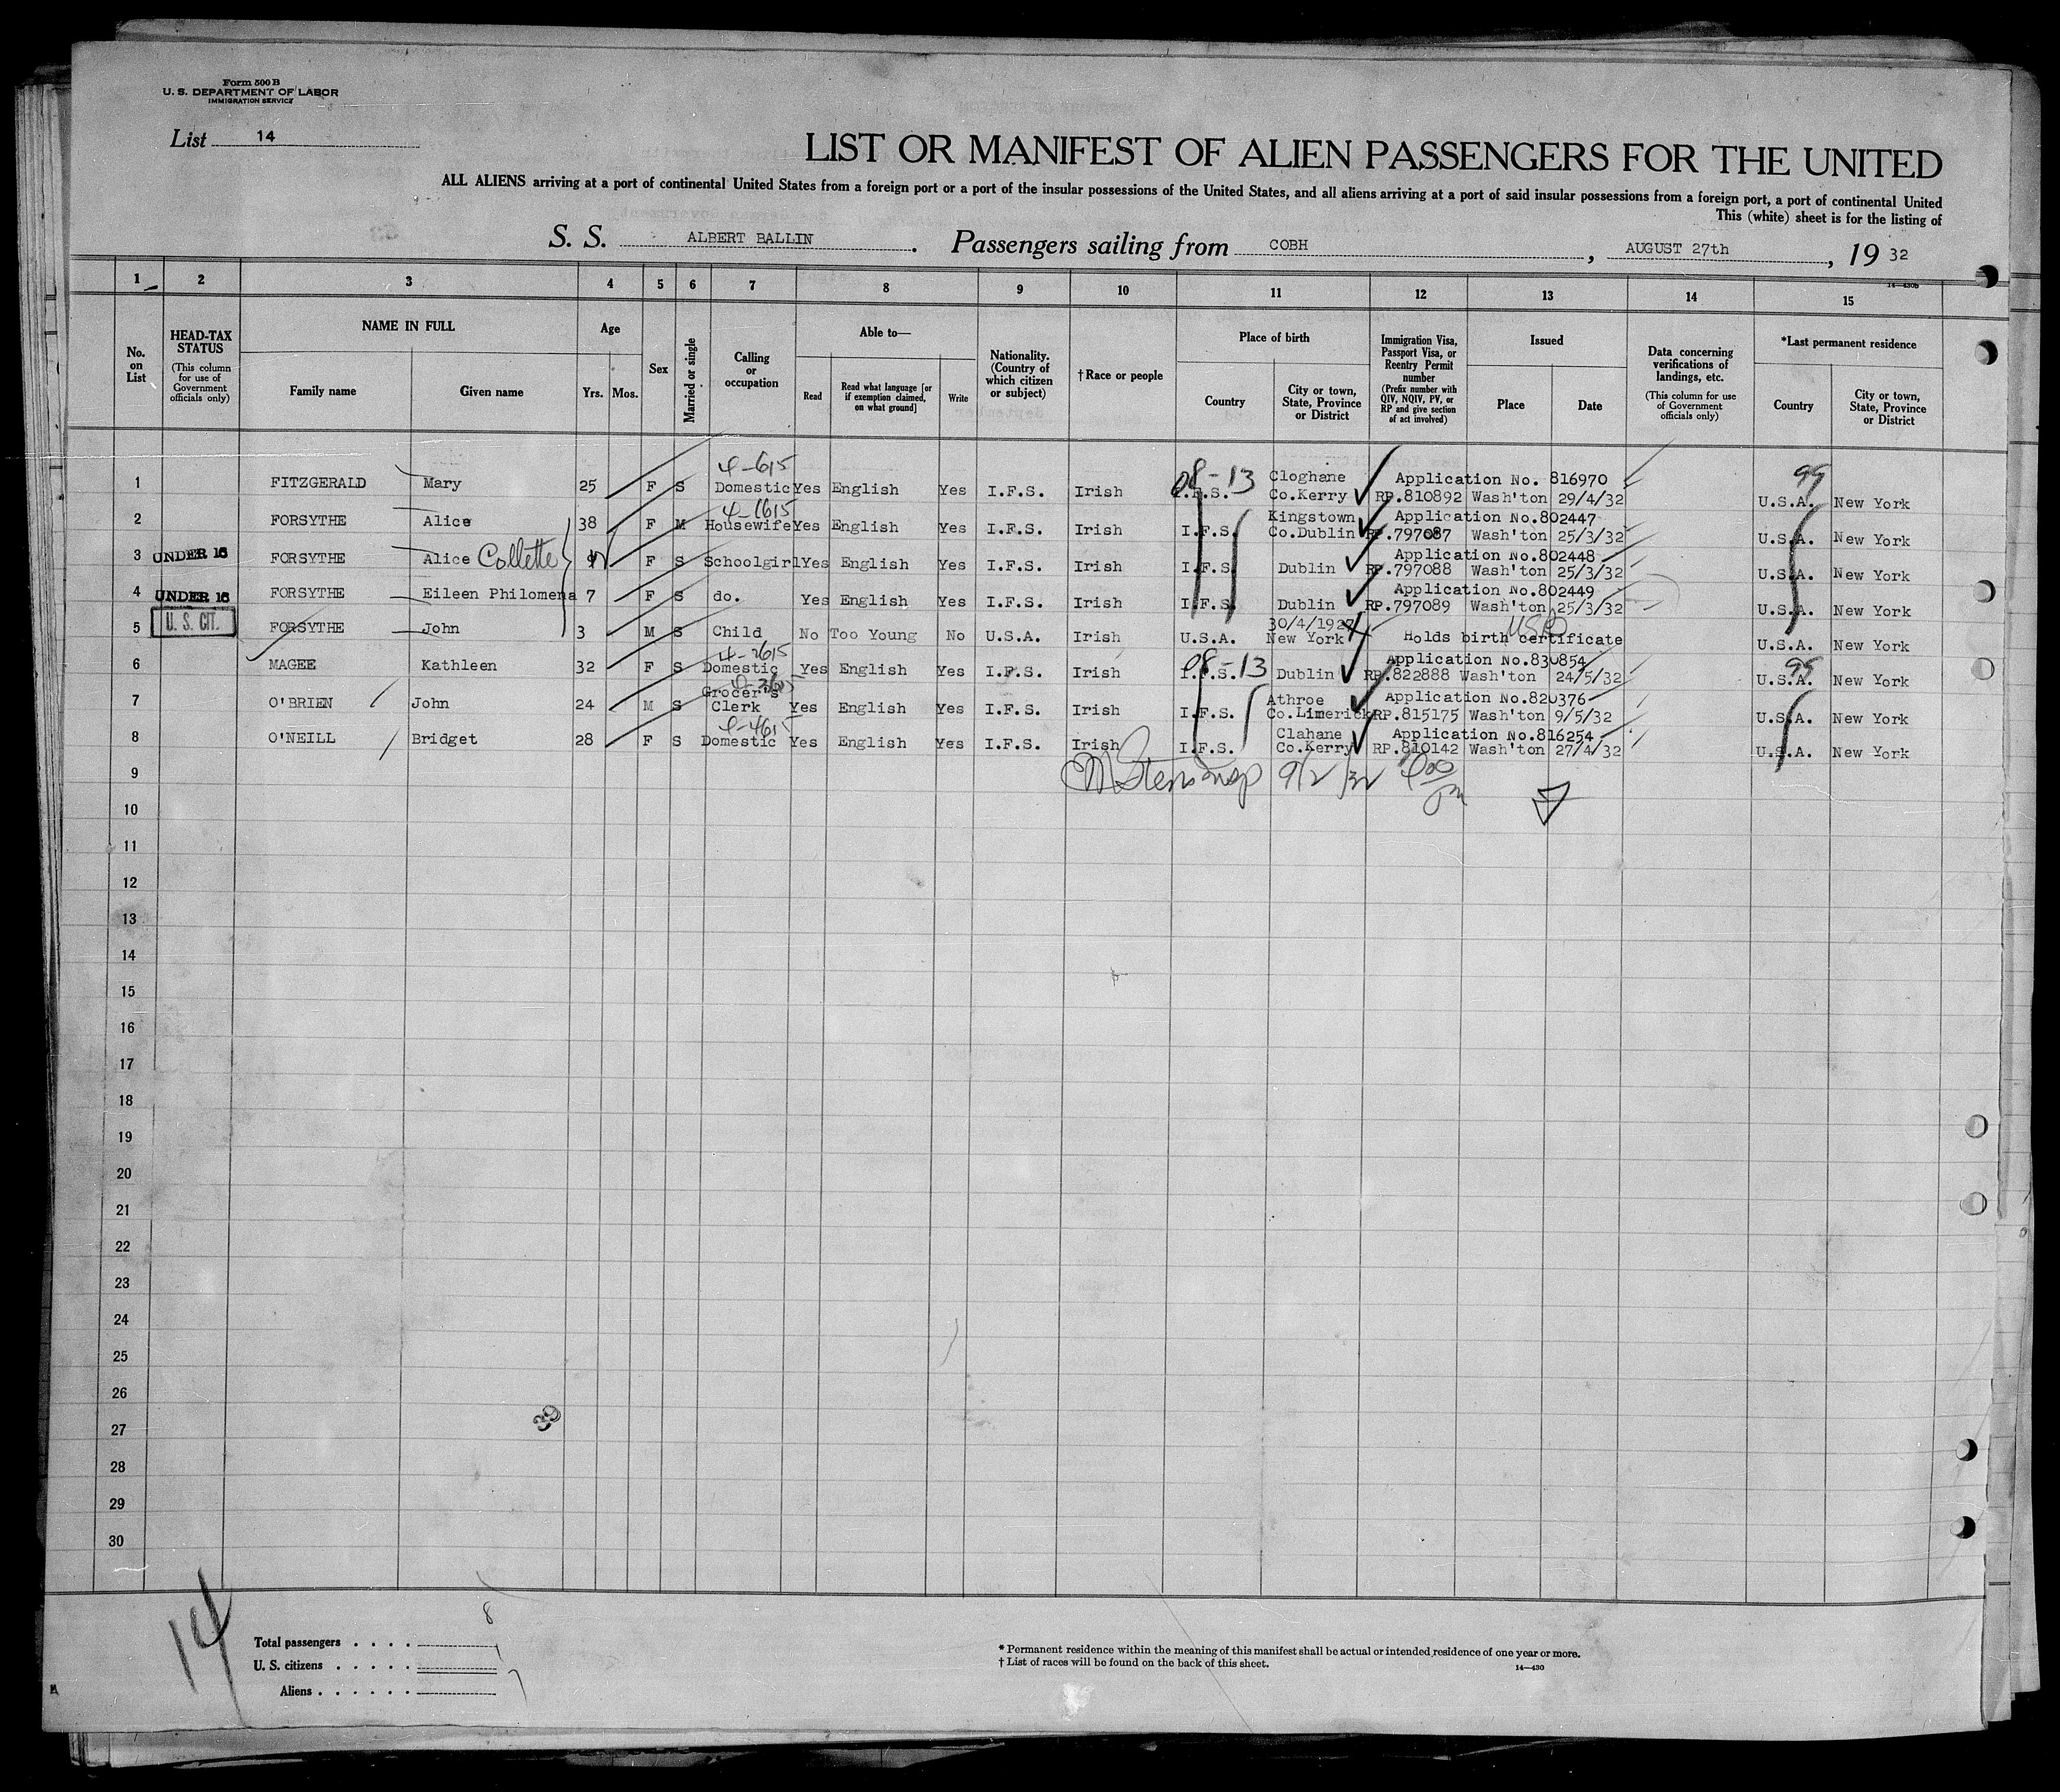 Form 500 B
U. S. DEPARTMENT OF LABOR
IMMIGRATION SERVICE
List 14
LIST OR MANIFEST OF ALIEN PASSENGERS FOR THE UNITED
ALL ALIENS arriving at a port of continental United States from a foreign port or a port of the insular possessions of the United States, and all aliens arriving at a port of said insular possessions from a foreign port, a port of continental United
This (white) sheet is for the listing of
S. S. ALBERT BALLIN. Passengers sailing from COBH, AUGUST 27th, 19 32
1 2 3 4 5 6 7 8 9 10 11 12 13 14 15
No. on List
HEAD-TAX STATUS (This column for use of Government officials only)
NAME IN FULL
Family name Given name
Age
Yrs. Mos.
Sex
Married or single
Calling or occupation
Able to—
Read Read what language [or if exemption claimed, on what ground] Write
Nationality. (Country of which citizen or subject)
†Race or people
Place of birth
Country City or town, State, Province or District
Immigration Visa, Passport Visa, or Reentry Permit number (Prefix number with QIV, NQIV, PV, or RP and give section of act involved)
Issued
Place Date
Data concerning verifications of landings, etc. (This column for use of Government officials only)
*Last permanent residence
Country City or town, State, Province or District
4-615 08-13 Cloghane Application No. 816970 99
1 FITZGERALD Mary 25 F S Domestic Yes English Yes I.F.S. Irish I.F.S. Co.Kerry RP.810892 Wash'ton 29/4/32 U.S.A. New York
4-1615 Kingstown Application No.802447
2 FORSYTHE Alice 38 F M Housewife Yes English Yes I.F.S. Irish I.F.S. Co.Dublin RP.797087 Wash'ton 25/3/32 U.S.A. New York
Application No.802448
3 UNDER 16 FORSYTHE Alice Collette F S Schoolgirl Yes English Yes I.F.S. Irish I.F.S. Dublin RP.797088 Wash'ton 25/3/32 U.S.A. New York
Application No.802449
4 UNDER 16 FORSYTHE Eileen Philomena 7 F S do. Yes English Yes I.F.S. Irish I.F.S. Dublin RP.797089 Wash'ton 25/3/32 U.S.A. New York
30/4/1927
5 U. S. CIT. FORSYTHE John 3 M S Child No Too Young No U.S.A. Irish U.S.A. New York Holds birth certificate U.S.A. New York
4-2615 08-13 Application No.830854 99
6 MAGEE Kathleen 32 F S Domestic Yes English Yes I.F.S. Irish I.F.S. Dublin RP.822888 Wash'ton 24/5/32 U.S.A. New York
4-3615 Athroe Application No.820376
7 O'BRIEN John 24 M S Grocer's Clerk Yes English Yes I.F.S. Irish I.F.S. Co.Limerick RP.815175 Wash'ton 9/5/32 U.S.A. New York
4-4615 Clahane Application No.816254
8 O'NEILL Bridget 28 F S Domestic Yes English Yes I.F.S. Irish I.F.S. Co.Kerry RP.810142 Wash'ton 27/4/32 U.S.A. New York
9 9/2/32
10
11
12
13
14
15
16
17
18
19
20
21
22
23
24
25
26
27
28
29
30
39
14
8
Total passengers . . . .
U. S. citizens . . . . . 1
Aliens . . . . . . 7
* Permanent residence within the meaning of this manifest shall be actual or intended residence of one year or more.
† List of races will be found on the back of this sheet.
14—430